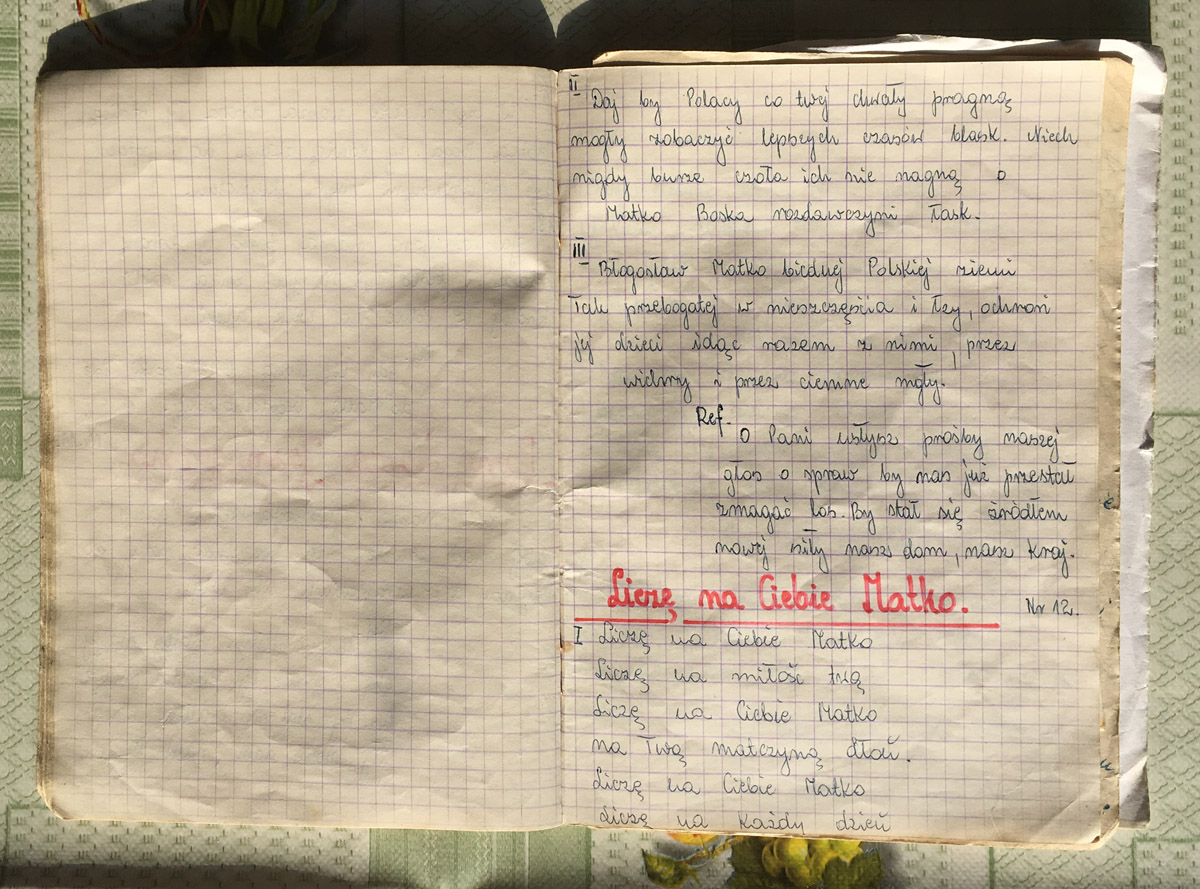 II
Daj by Polacy co twej chwały pragną
mogły zobaczyć lepszych czasów blask. Niech
nigdy burze czoła ich nie nagną o
Matko Boska rozdawczyni łask.
III
Błogosław Matko biednej Polskiej ziemi
Tak przebogatej w nieszczęścia i łzy, ochroń
jej dzieci idąc razem z nimi, przez
wichry i przez ciemne mgły.
Ref.
O Pani usłysz prośby naszej
głos o spraw by nas już przestał
zmagać los. By stał się źródłem
nowej siły nasz dom, nasz kraj.
Liczę na Ciebie Matko. Nr 12.
I Liczę na Ciebie Matko
Liczę na miłość twą
Liczę na Ciebie Matko
na Twą matczyną dłoń.
Liczę na Ciebie Matko
Liczę na każdy dzień